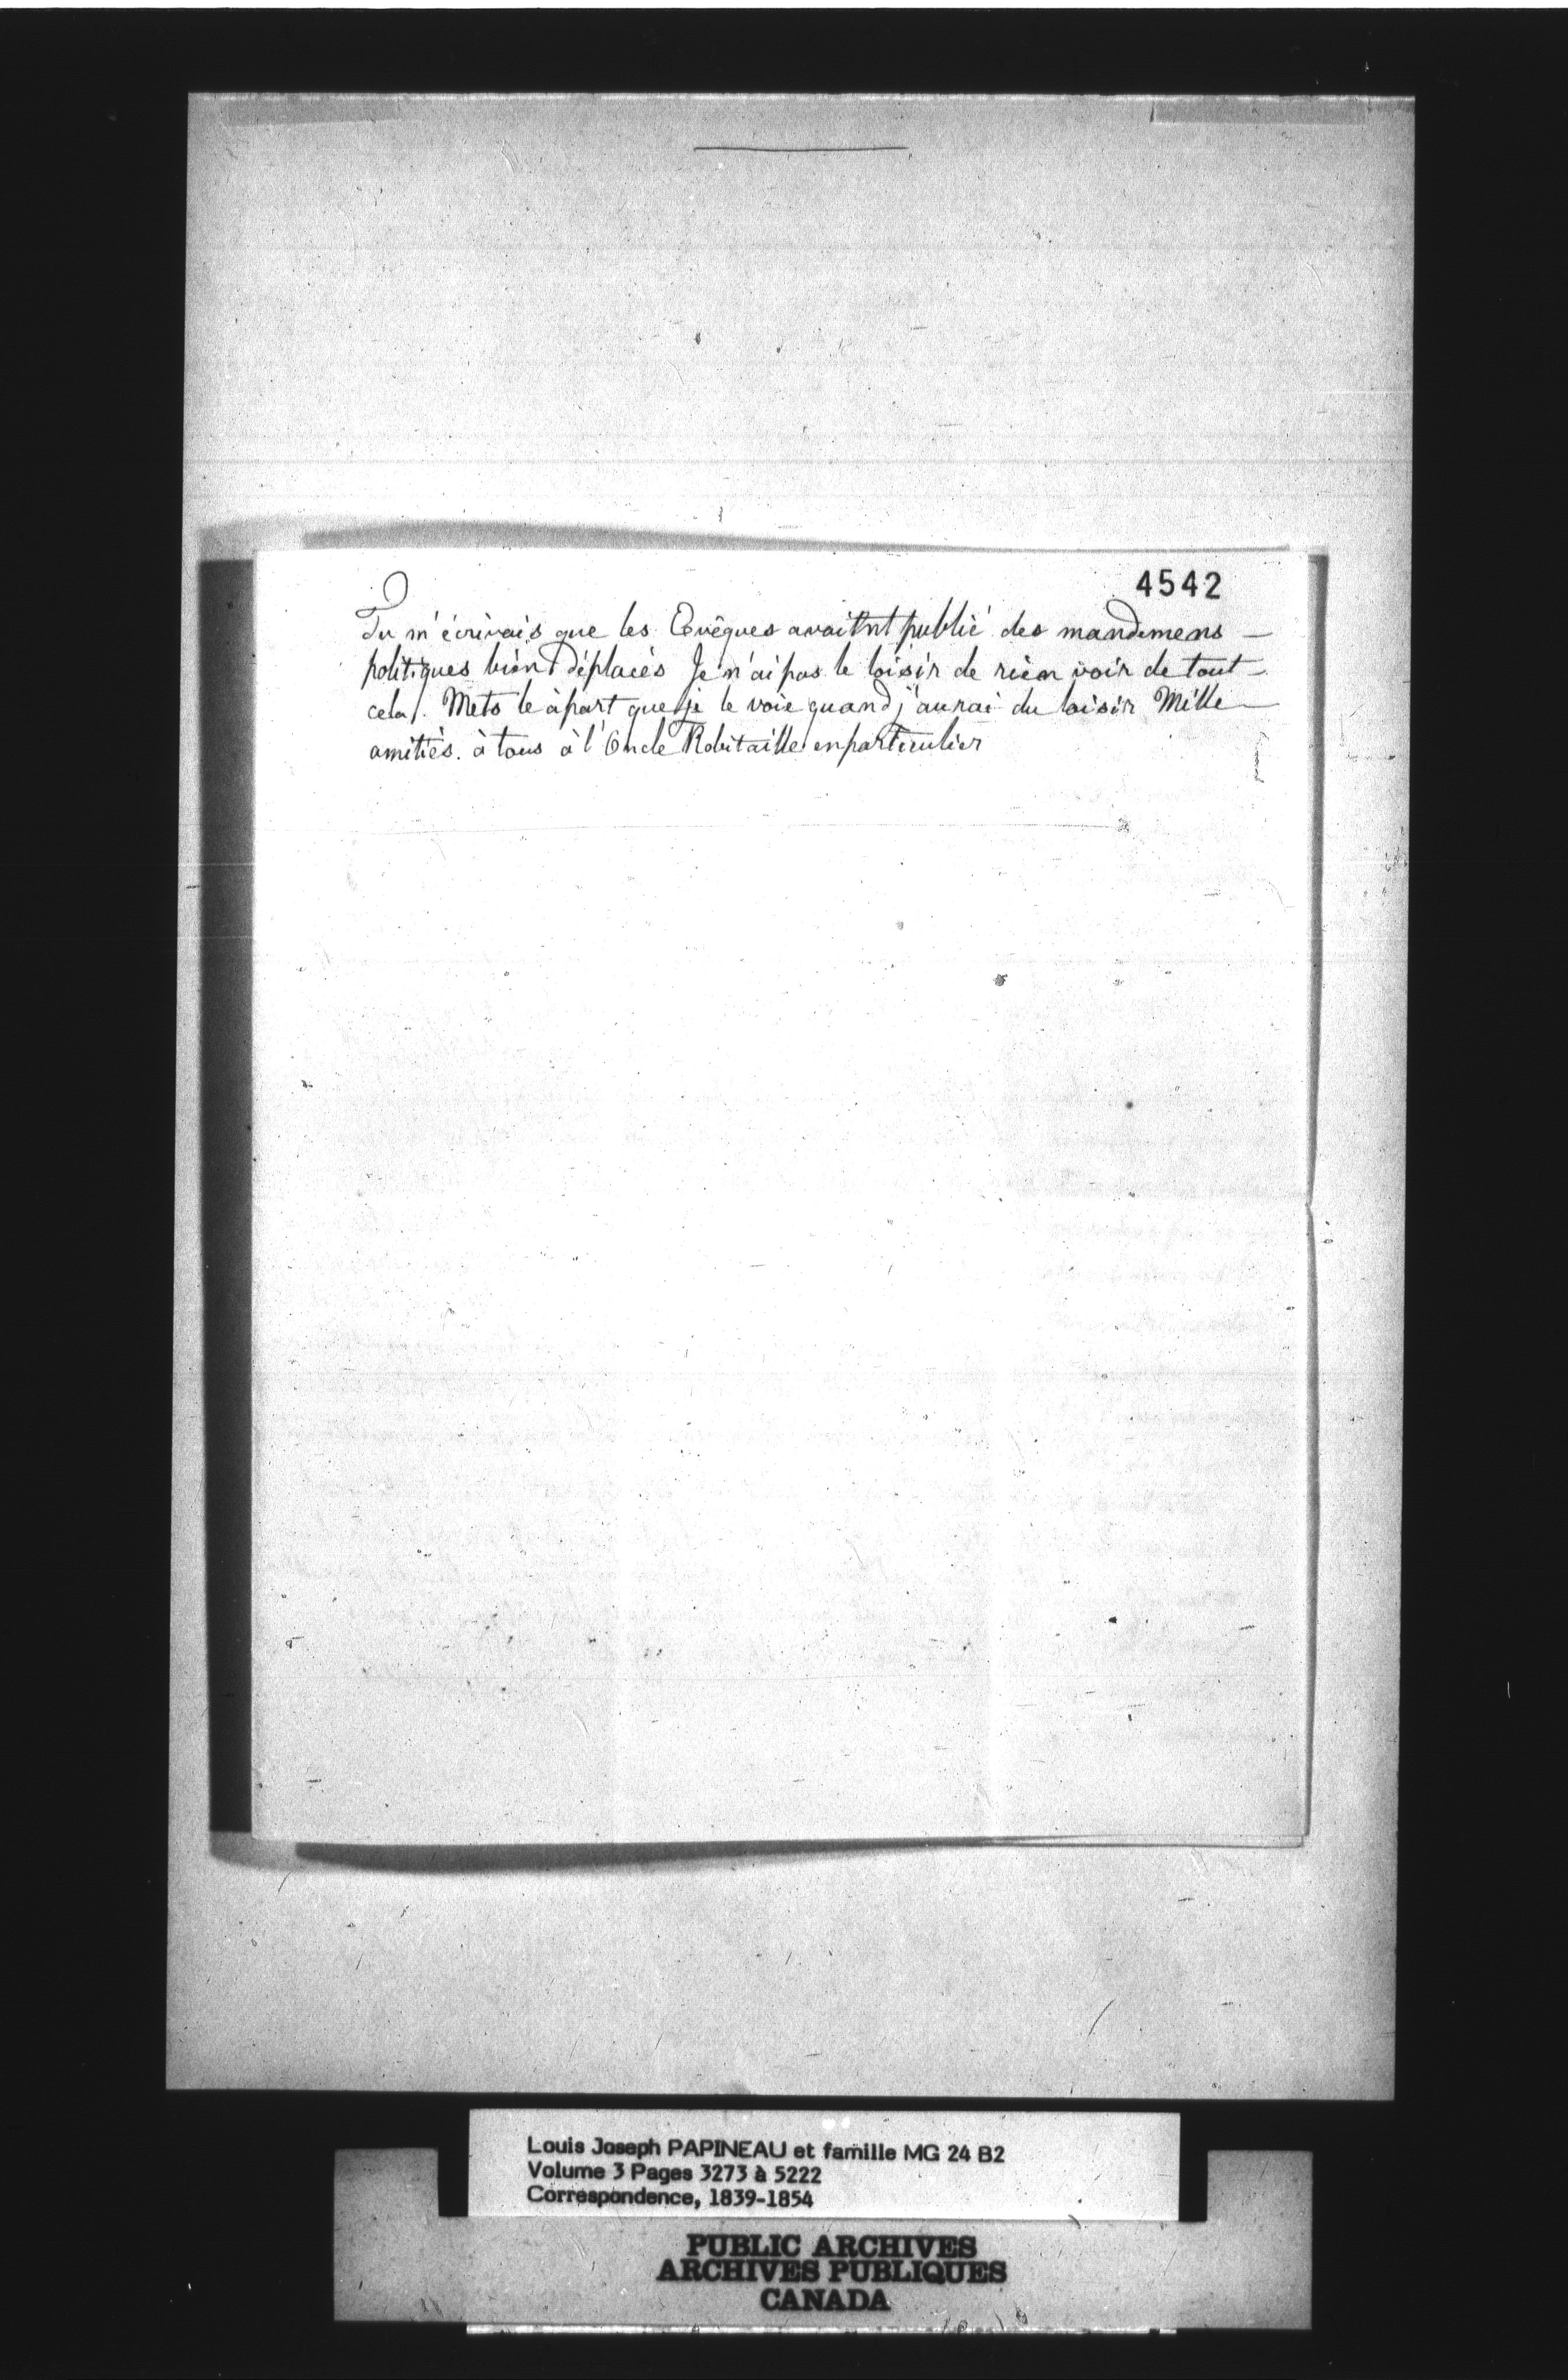 4542
Tu m'écrivais que les Evêques avaient publié des mandemens —
politiques bien déplacés Je n'ai pas le loisir de rien voir de tout —
cela. Mets le àpart que je le voie quand j'aurai du loisir Mille —
amitiés. à tous à l'Oncle Robitaille en particulier
Louis Joseph PAPINEAU et famille MG 24 B2
Volume 3 Pages 3273 à 5222
Correspondence, 1839-1854
PUBLIC ARCHIVES
ARCHIVES PUBLIQUES
CANADA